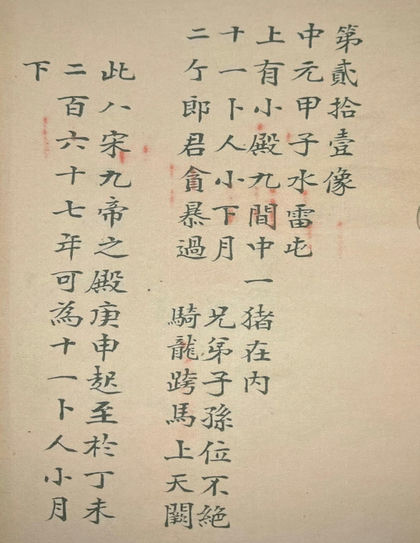 第貳拾壹像
中元甲子水雷屯
上有小殿九間中一猪在内
十一卜人小下月 兄弟子孫位不絶
二亇郎君貪暴過 騎龍跨馬上天闕
此八宋九帝之殿庚申起至於丁未
二百六十七年可為十一卜人小月
下